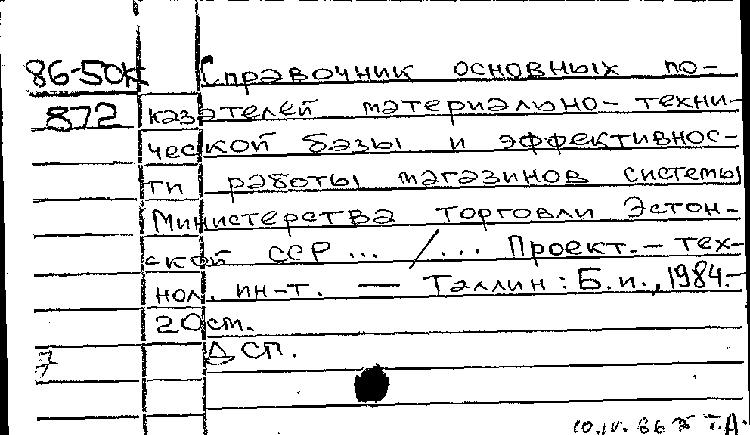 86-50К Справочник основных по-
872 казателей материально-техни-
ческой базы и эффективнос-
ти работы магазинов системы
Министерства торговли Эстон-
ской ССР ... /... Проект.-тех-
нол. ин-т. — Таллин : Б.и., 1984.-
20 см.
7 Дсп.